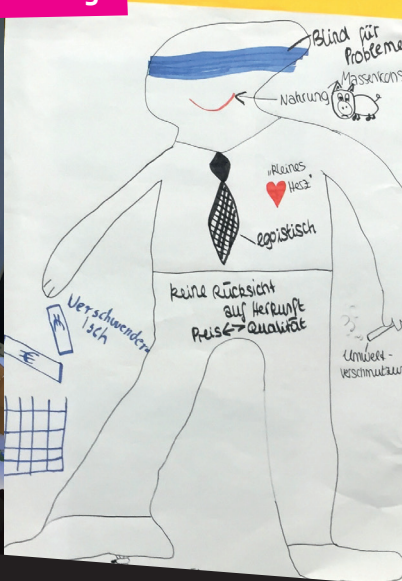 Blind für
Probleme
Massenkons
Nahrung
"kleines
Herz"
egoistisch
keine Rücksicht
auf Herkunft
Preis <-> Qualität
Verschwender-
isch
€
€
Umwelt-
verschmutzun